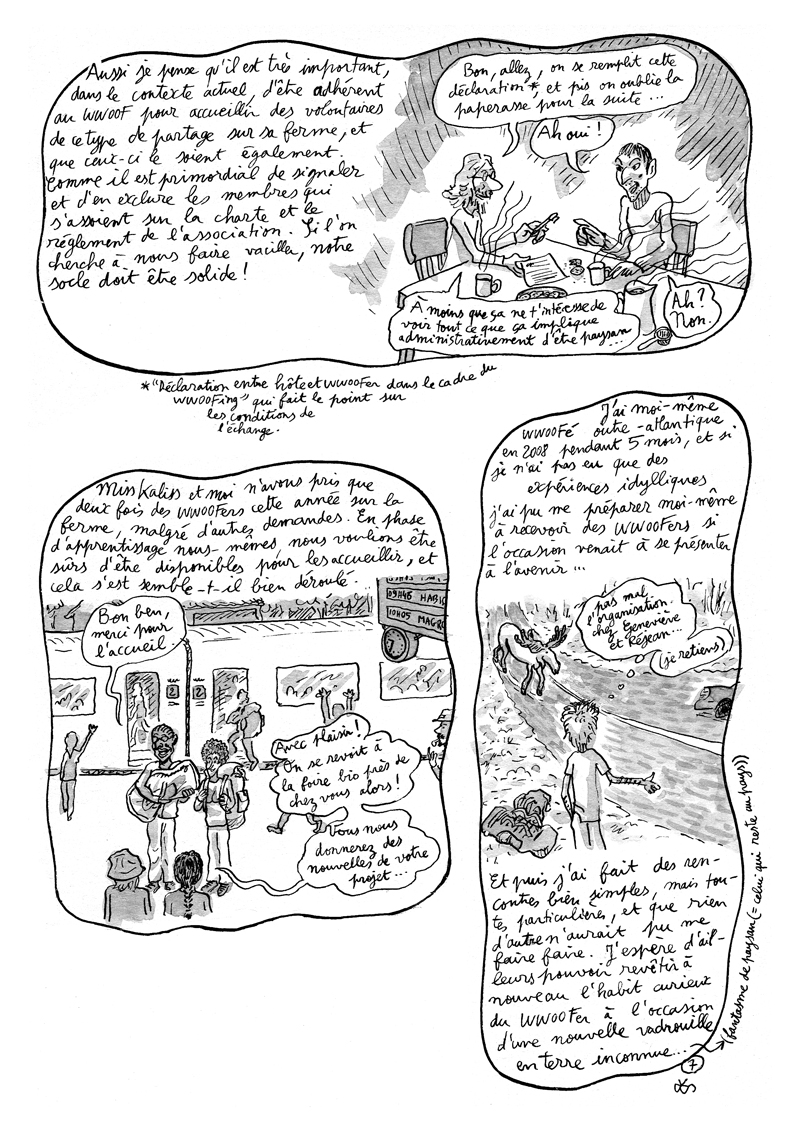 Aussi je pense qu'il est très important,
dans le contexte actuel, d'être adhérent
au WWOOF pour accueillir des volontaires
de ce type de partage sur sa ferme, et
que ceux-ci le soient également.
Comme il est primordial de signaler
et d'en exclure les membres qui
s'assoient sur la charte et le
règlement de l'association. Si l'on
cherche à nous faire vaciller, notre
socle doit être solide !
Bon, allez, on se remplit cette
déclaration*, et pis on oublie la
paperasse pour la suite...
Ah oui !
À moins que ça ne t'intéresse de
voir tout ce que ça implique
administrativement d'être paysan...
Ah ?
Non.
*"Déclaration entre hôte et WWOOFer dans le cadre du
WWOOFing" qui fait le point sur
les conditions de
l'échange.
Miss Kaliss et moi n'avons pris que
deux fois des WWOOFers cette année sur la
ferme, malgré d'autres demandes. En phase
d'apprentissage nous-mêmes, nous voulions être
sûrs d'être disponibles pour les accueillir, et
cela s'est semble-t-il bien déroulé.
Bon ben,
merci pour
l'accueil
09H46 HABIC
10H05 MAGR
2
2
Avec plaisir !
On se revoit à
la foire bio près de
chez vous alors !
Vous nous
donnerez des
nouvelles de votre
projet...
J'ai moi-même
WWOOFé outre-atlantique
en 2008 pendant 5 mois, et si
je n'ai pas eu que des
expériences idylliques
j'ai pu me préparer moi-même
à recevoir des WWOOFers si
l'occasion venait à se présenter
à l'avenir...
pas mal
l'organisation
chez Geneviève
et Réjean...
(je retiens)
Et puis j'ai fait des ren-
contres bien simples, mais tou-
tes particulières, et que rien
d'autre n'aurait pu me
faire faire. J'espère d'ail-
leurs pouvoir revêtir à
nouveau l'habit curieux
du WWOOFer à l'occasion
d'une nouvelle vadrouille
en terre inconnue...
(fantasme de paysan (= celui qui reste au pays))
7